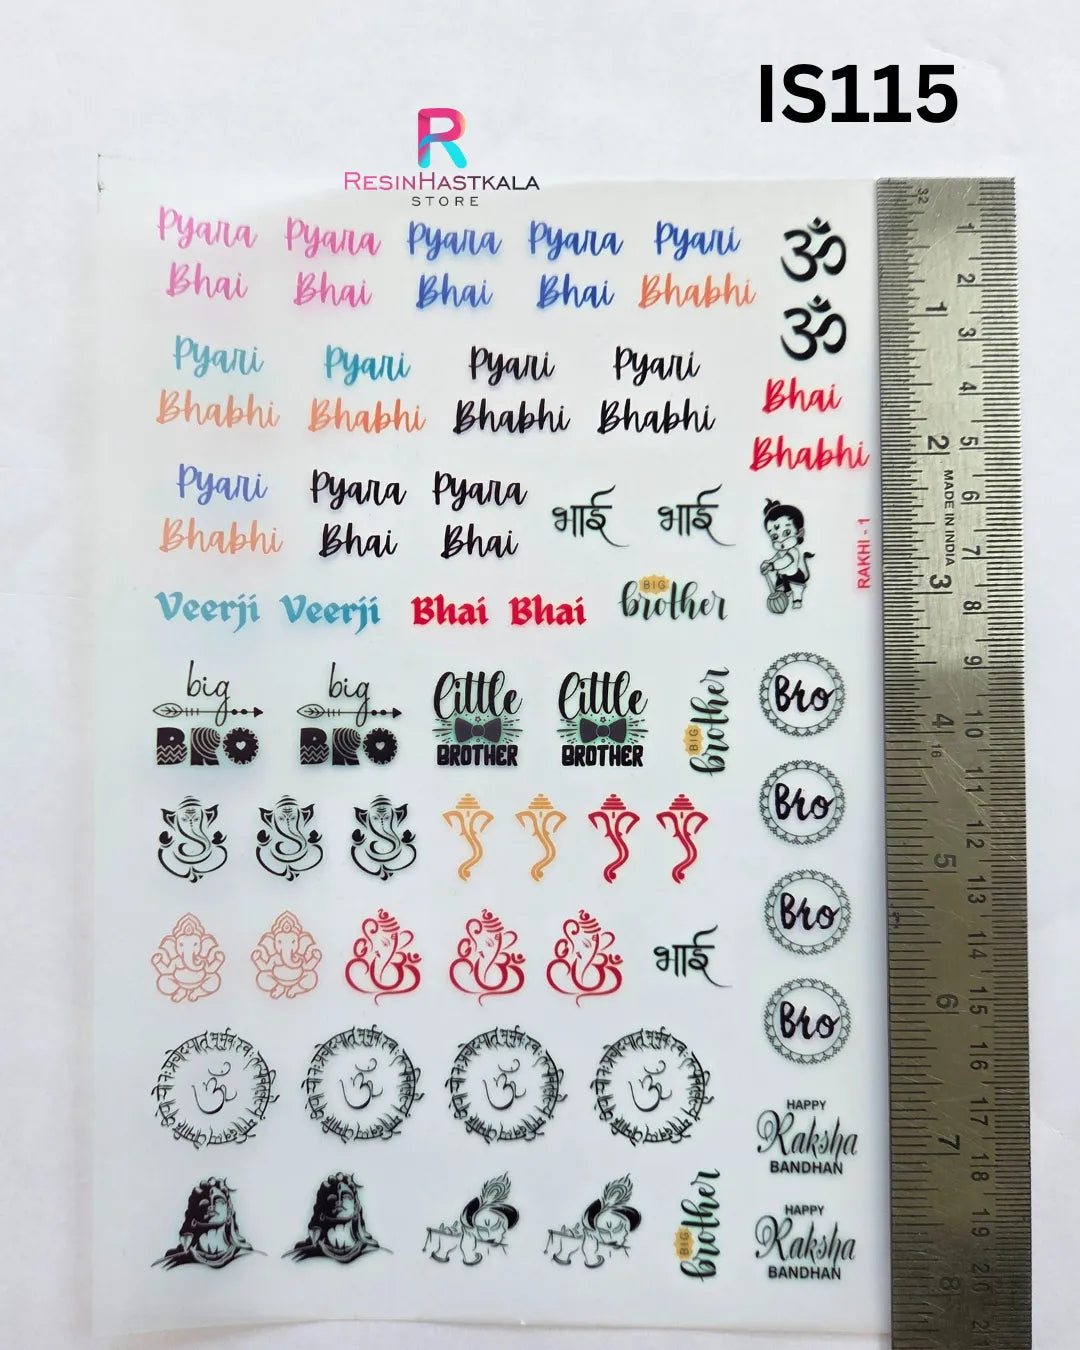 IS115
R
RESINHASTKALA
STORE
Pyara Pyara Pyara Pyara Pyari
Bhai Bhai Bhai Bhai Bhabhi
ॐ
ॐ
Pyari Pyari Pyari Pyari
Bhabhi Bhabhi Bhabhi Bhabhi
Bhai
Bhabhi
Pyari Pyara Pyara
Bhabhi Bhai Bhai
भाई भाई
RAKHI - 1
Veerji Veerji Bhai Bhai
BIG
brother
big big
BRO BRO
little little
BROTHER BROTHER
BIG
brother
Bro
Bro
Bro
Bro
भाई
ॐ ॐ ॐ ॐ
HAPPY
Raksha
BANDHAN
BIG
brother
HAPPY
Raksha
BANDHAN
32
1 2 3 4 5 6 7 8 9 10 11 12 13 14 15 16 17 18 19 20 21
1 2 3 4 5 6 7 8
MADE IN INDIA
16